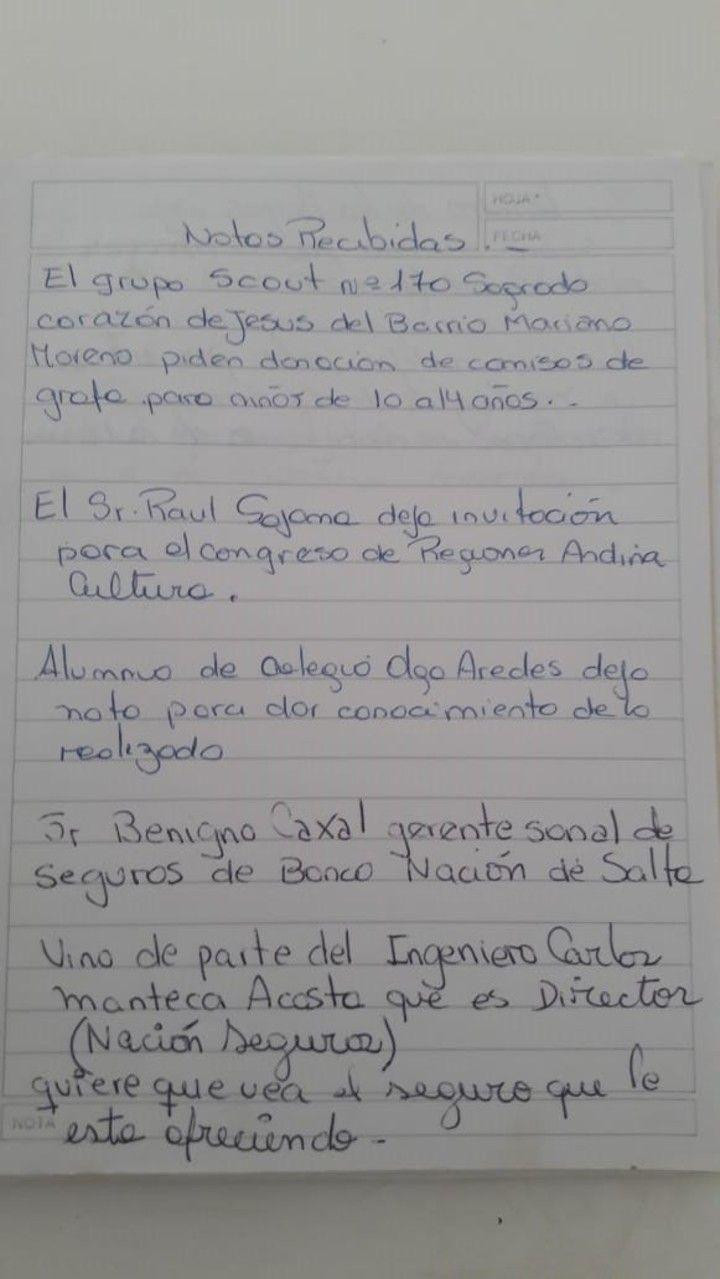 HOJA Nº
Notas Recibidas.
FECHA
El grupo Scout nº 170 Sagrado
corazón de Jesus del Barrio Mariano
Moreno piden donacion de camisas de
grafa para niños de 10 a 14 años..
El Sr. Raul Sajama deja invitación
para el congreso de Regiones Andina
Cultura.
Alumno de Colegio Dgo Aredes dejo
nota para dar conocimiento de lo
realizado
Sr Benigno Caxal gerente sonal de
seguros de Banco Nación de Salta
Vino de parte del Ingeniero Carlos
manteca Acosta que es Director
(Nación Seguros)
quiere que vea el seguro que le
NOTA
esta ofreciendo-